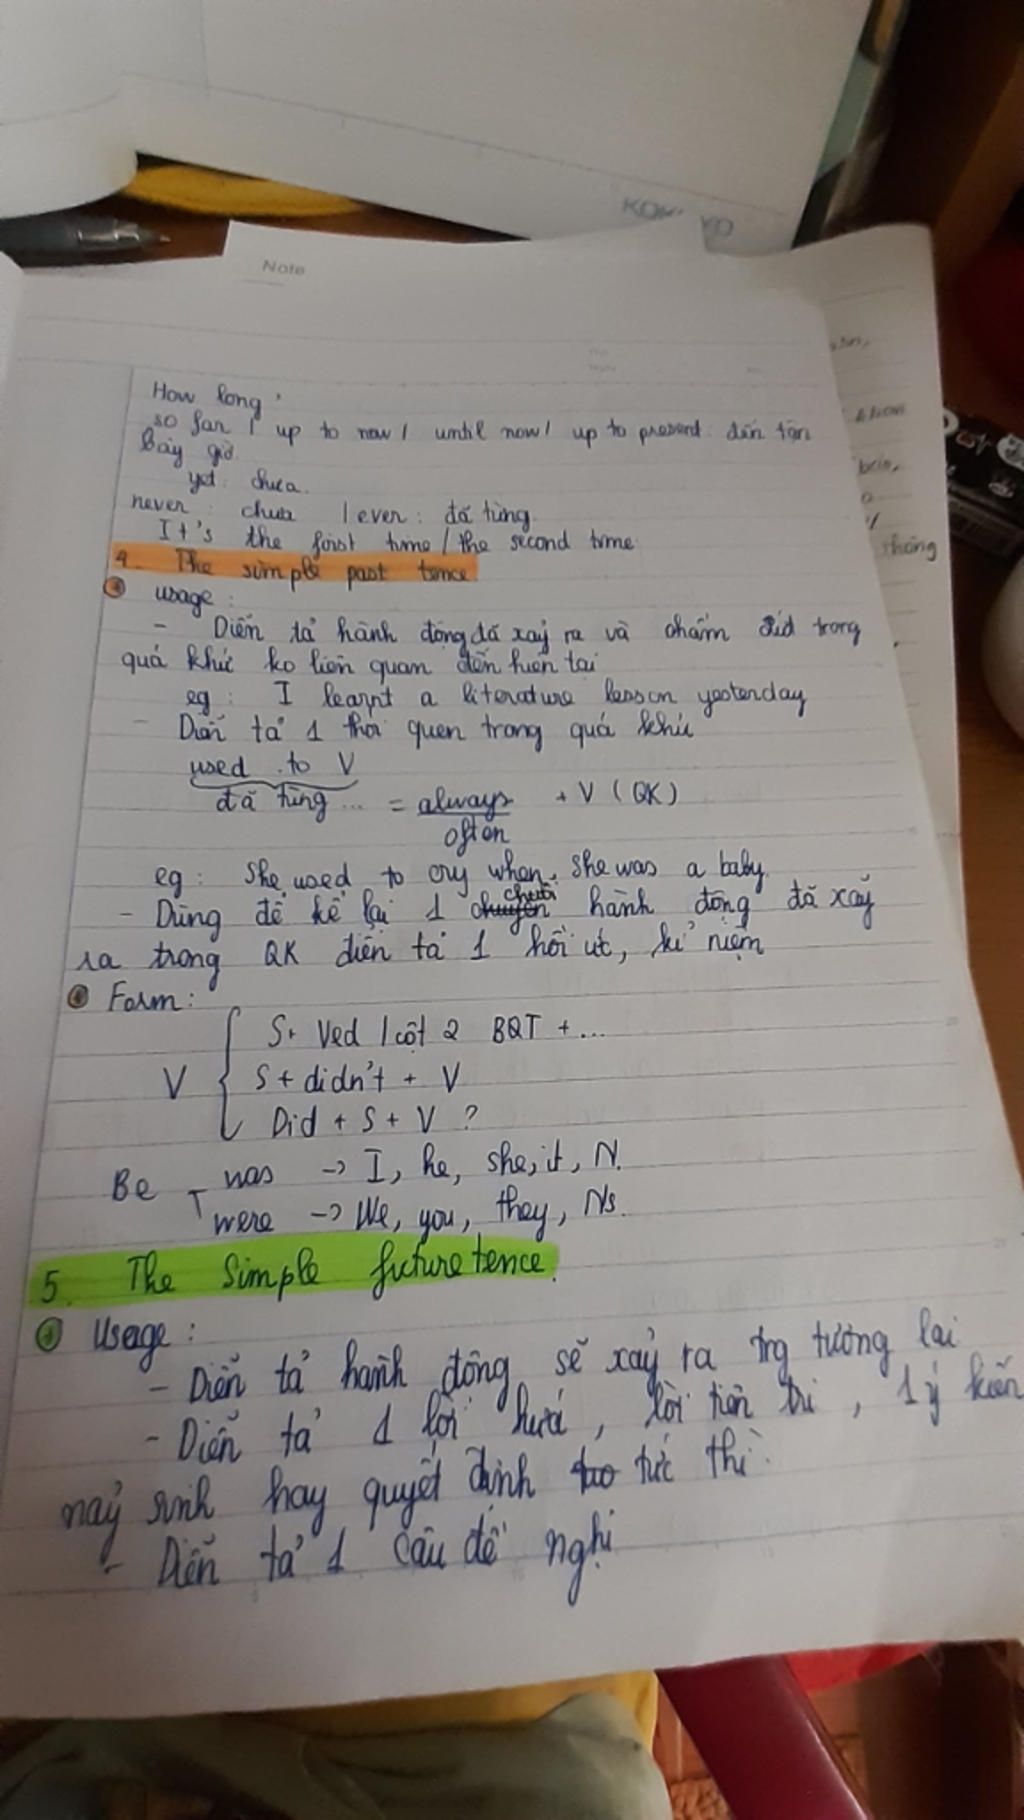 KOKUYO
Note
How long
so far / up to now / until now / up to present: đến tận
bây giờ.
yet: chưa.
never: chưa / ever: đã từng.
It's the first time / the second time
4. The simple past tence
usage:
- Diễn tả hành động đã xảy ra và chấm dứt trong
quá khứ ko liên quan đến hiện tại
eg: I learnt a literature lesson yesterday
- Diễn tả 1 thói quen trong quá khứ
used to V
đã từng ... = always + V (QK)
often
eg: She used to cry when she was a baby.
- Dùng để kể lại 1 chuỗi hành động đã xảy
ra trong QK diễn tả 1 hồi ức, kỉ niệm
Form:
S + Ved / cột 2 BQT + ...
V S + didn't + V
Did + S + V ?
Be was -> I, he, she, it, N.
were -> We, you, they, Ns.
5. The simple future tence.
Usage:
- Diễn tả hành động sẽ xảy ra trg tương lai
- Diễn tả 1 lời hứa, lời tiên tri, 1 ý kiến
nảy sinh hay quyết định tức thì.
- Diễn tả 1 câu đề nghị